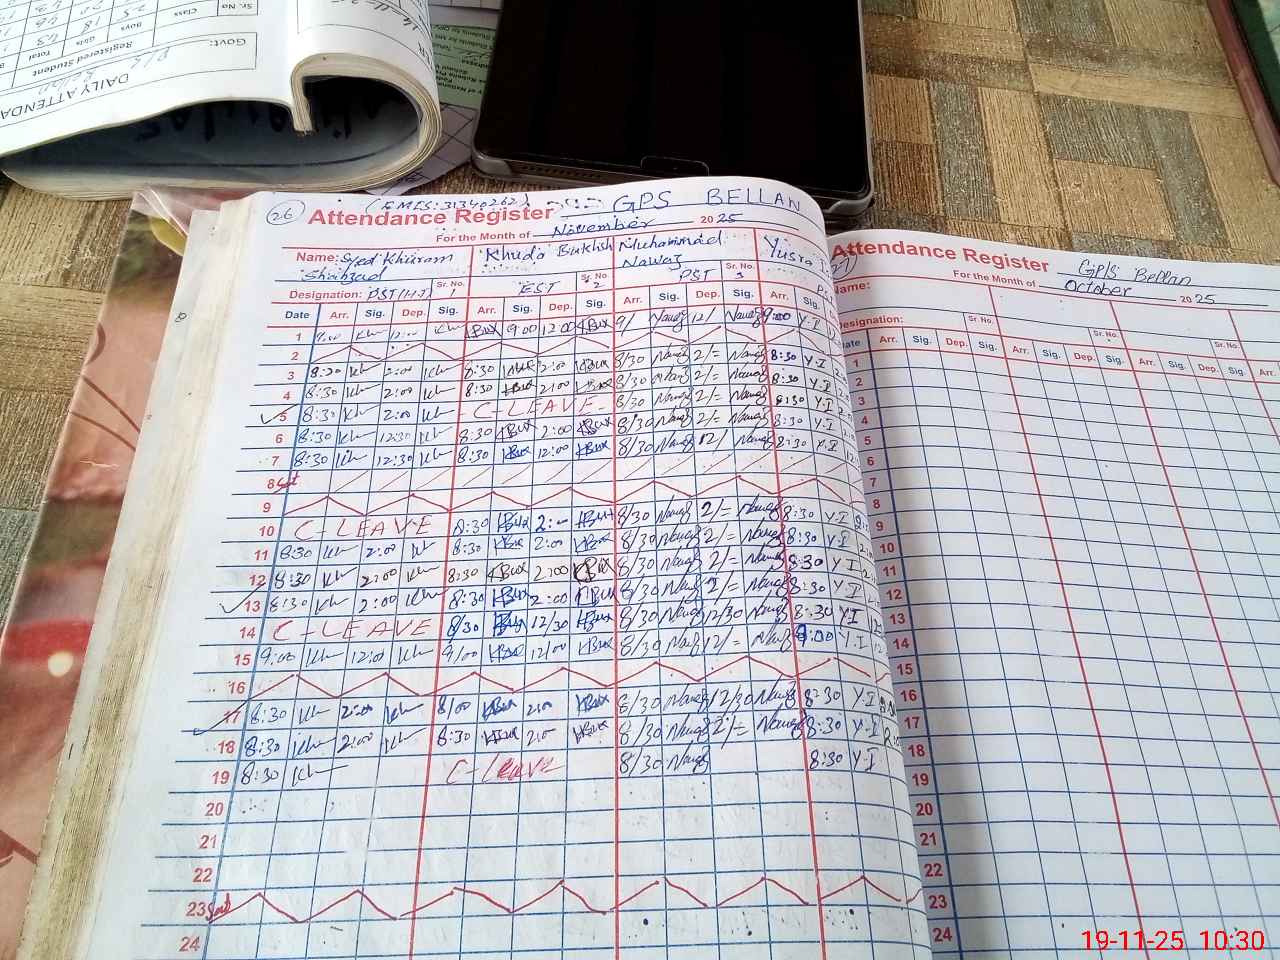 DAILY ATTENDA
Govt:
Registered Student
Class
Boys
Girls
Total
Sr. No
(EMIS:31340262)
26 Attendance Register GPS BELLAN
For the Month of November 2025
Name: Syed Khurram Shahzad
Khuda Bukhsh
Muhammad Nawaz
Yusra I
Designation: PST Sr. No. 1 EST Sr. No. 2 PST Sr. No. 3
Date Arr. Sig. Dep. Sig. Arr. Sig. Dep. Sig. Arr. Sig. Dep. Sig. Arr. Sig.
1 9:00 Kh 12:00 Kh KBux 9:00 12:00 KBux 9/ Nawaz 12/ Nawaz 9:00 Y-I
2
3 8:30 Kh 2:00 Kh 8:30 KBux 2:00 KBux 8/30 Nawaz 2/= Nawaz 8:30 Y-I
4 8:30 Kh 2:00 Kh 8:30 KBux 2:00 KBux 8/30 Nawaz 2/= Nawaz 8:30 Y-I
5 8:30 Kh 2:00 Kh - C-LEAVE - 8/30 Nawaz 2/= Nawaz 8:30 Y-I
6 8:30 Kh 12:30 Kh 8:30 KBux 2:00 KBux 8/30 Nawaz 2/= Nawaz 8:30 Y-I
7 8:30 Kh 12:30 Kh 8:30 KBux 12:00 KBux 8/30 Nawaz 12/ Nawaz 8:30 Y-I
8 Sat
9
10 C-LEAVE 8:30 KBux 2:00 KBux 8/30 Nawaz 2/= Nawaz 8:30 Y-I
11 8:30 Kh 2:00 Kh 8:30 KBux 2:00 KBux 8/30 Nawaz 2/= Nawaz 8:30 Y-I
12 8:30 Kh 2:00 Kh 8:30 KBux 2:00 KBux 8/30 Nawaz 2/= Nawaz 8:30 Y I
13 8:30 Kh 2:00 Kh 8:30 KBux 2:00 KBux 8/30 Nawaz 2/= Nawaz 8:30 Y-I
14 C-LEAVE 8/30 KBux 12/30 KBux 8/30 Nawaz 12/30 Nawaz 8:30 Y I
15 9:00 Kh 12:00 Kh 9/00 KBux 12/00 KBux 8/30 Nawaz 12/= Nawaz 9:00 Y-I
16
17 8:30 Kh 2:00 Kh 8/00 KBux 2:00 KBux 8/30 Nawaz 12/30 Nawaz 8:30 Y-I
18 8:30 Kh 2:00 Kh 8:30 KBux 2:00 KBux 8/30 Nawaz 2/= Nawaz 8:30 Y-I
19 8:30 Kh C-LEAVE 8/30 Nawaz 8:30 Y-I
20
21
22
23
24
27 Attendance Register GPS Bellan
For the Month of October 2025
Name:
Designation: Sr. No. Sr. No. Sr. No.
Date Arr. Sig. Dep. Sig. Arr. Sig. Dep. Sig. Arr. Sig. Dep. Sig.
1
2
3
4
5
6
7
8
9
10
11
12
13
14
15
16
17
18
19
20
21
22
23
24
19-11-25 10:30